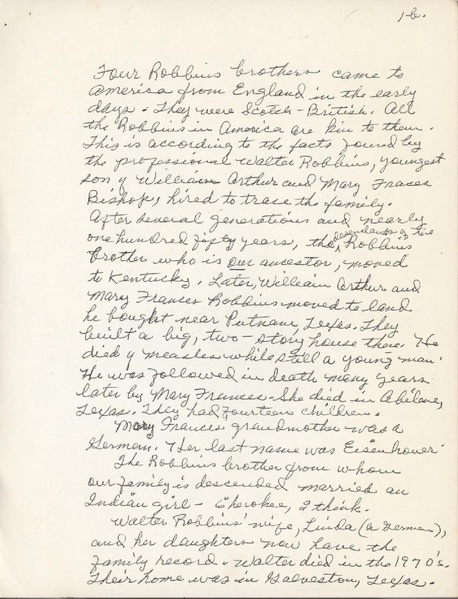 1-b.
Four Robbins brothers came to
America from England in the early
days. They were Scotch-British. All
the Robbins in America are kin to them.
This is according to the facts found by
the professional Walter Robbins, youngest
son of William Arthur and Mary Frances
Bishop, hired to trace the family.
After several generations and nearly
one hundred fifty years, the descendants of the Robbins
brother who is our ancestor, moved
to Kentucky. Later, William Arthur and
Mary Frances Robbins moved to land
he bought near Putnam, Texas. They
built a big, two-story house there. He
died of measles while still a young man.
He was followed in death many years
later by Mary Frances. She died in Abilene,
Texas. They had fourteen children.
Mary Frances grandmother was a
German. Her last name was Eisenhower.
The Robbins brother from whom
our family is descended married an
Indian girl - Cherokee, I think.
Walter Robbins' wife, Linda (a German),
and her daughters now have the
family record. Walter died in the 1970's.
Their home was in Galveston, Texas.